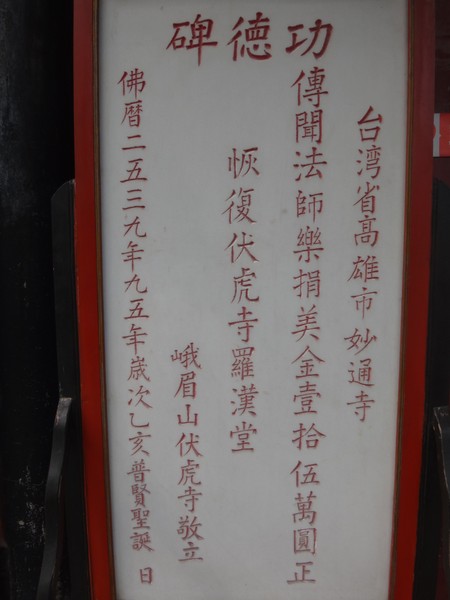 功德碑
台湾省高雄市妙通寺
傳聞法師樂捐美金壹拾伍萬圓正
恢復伏虎寺羅漢堂
峨眉山伏虎寺敬立
佛曆二五三九年九五年歲次乙亥普賢聖誕日